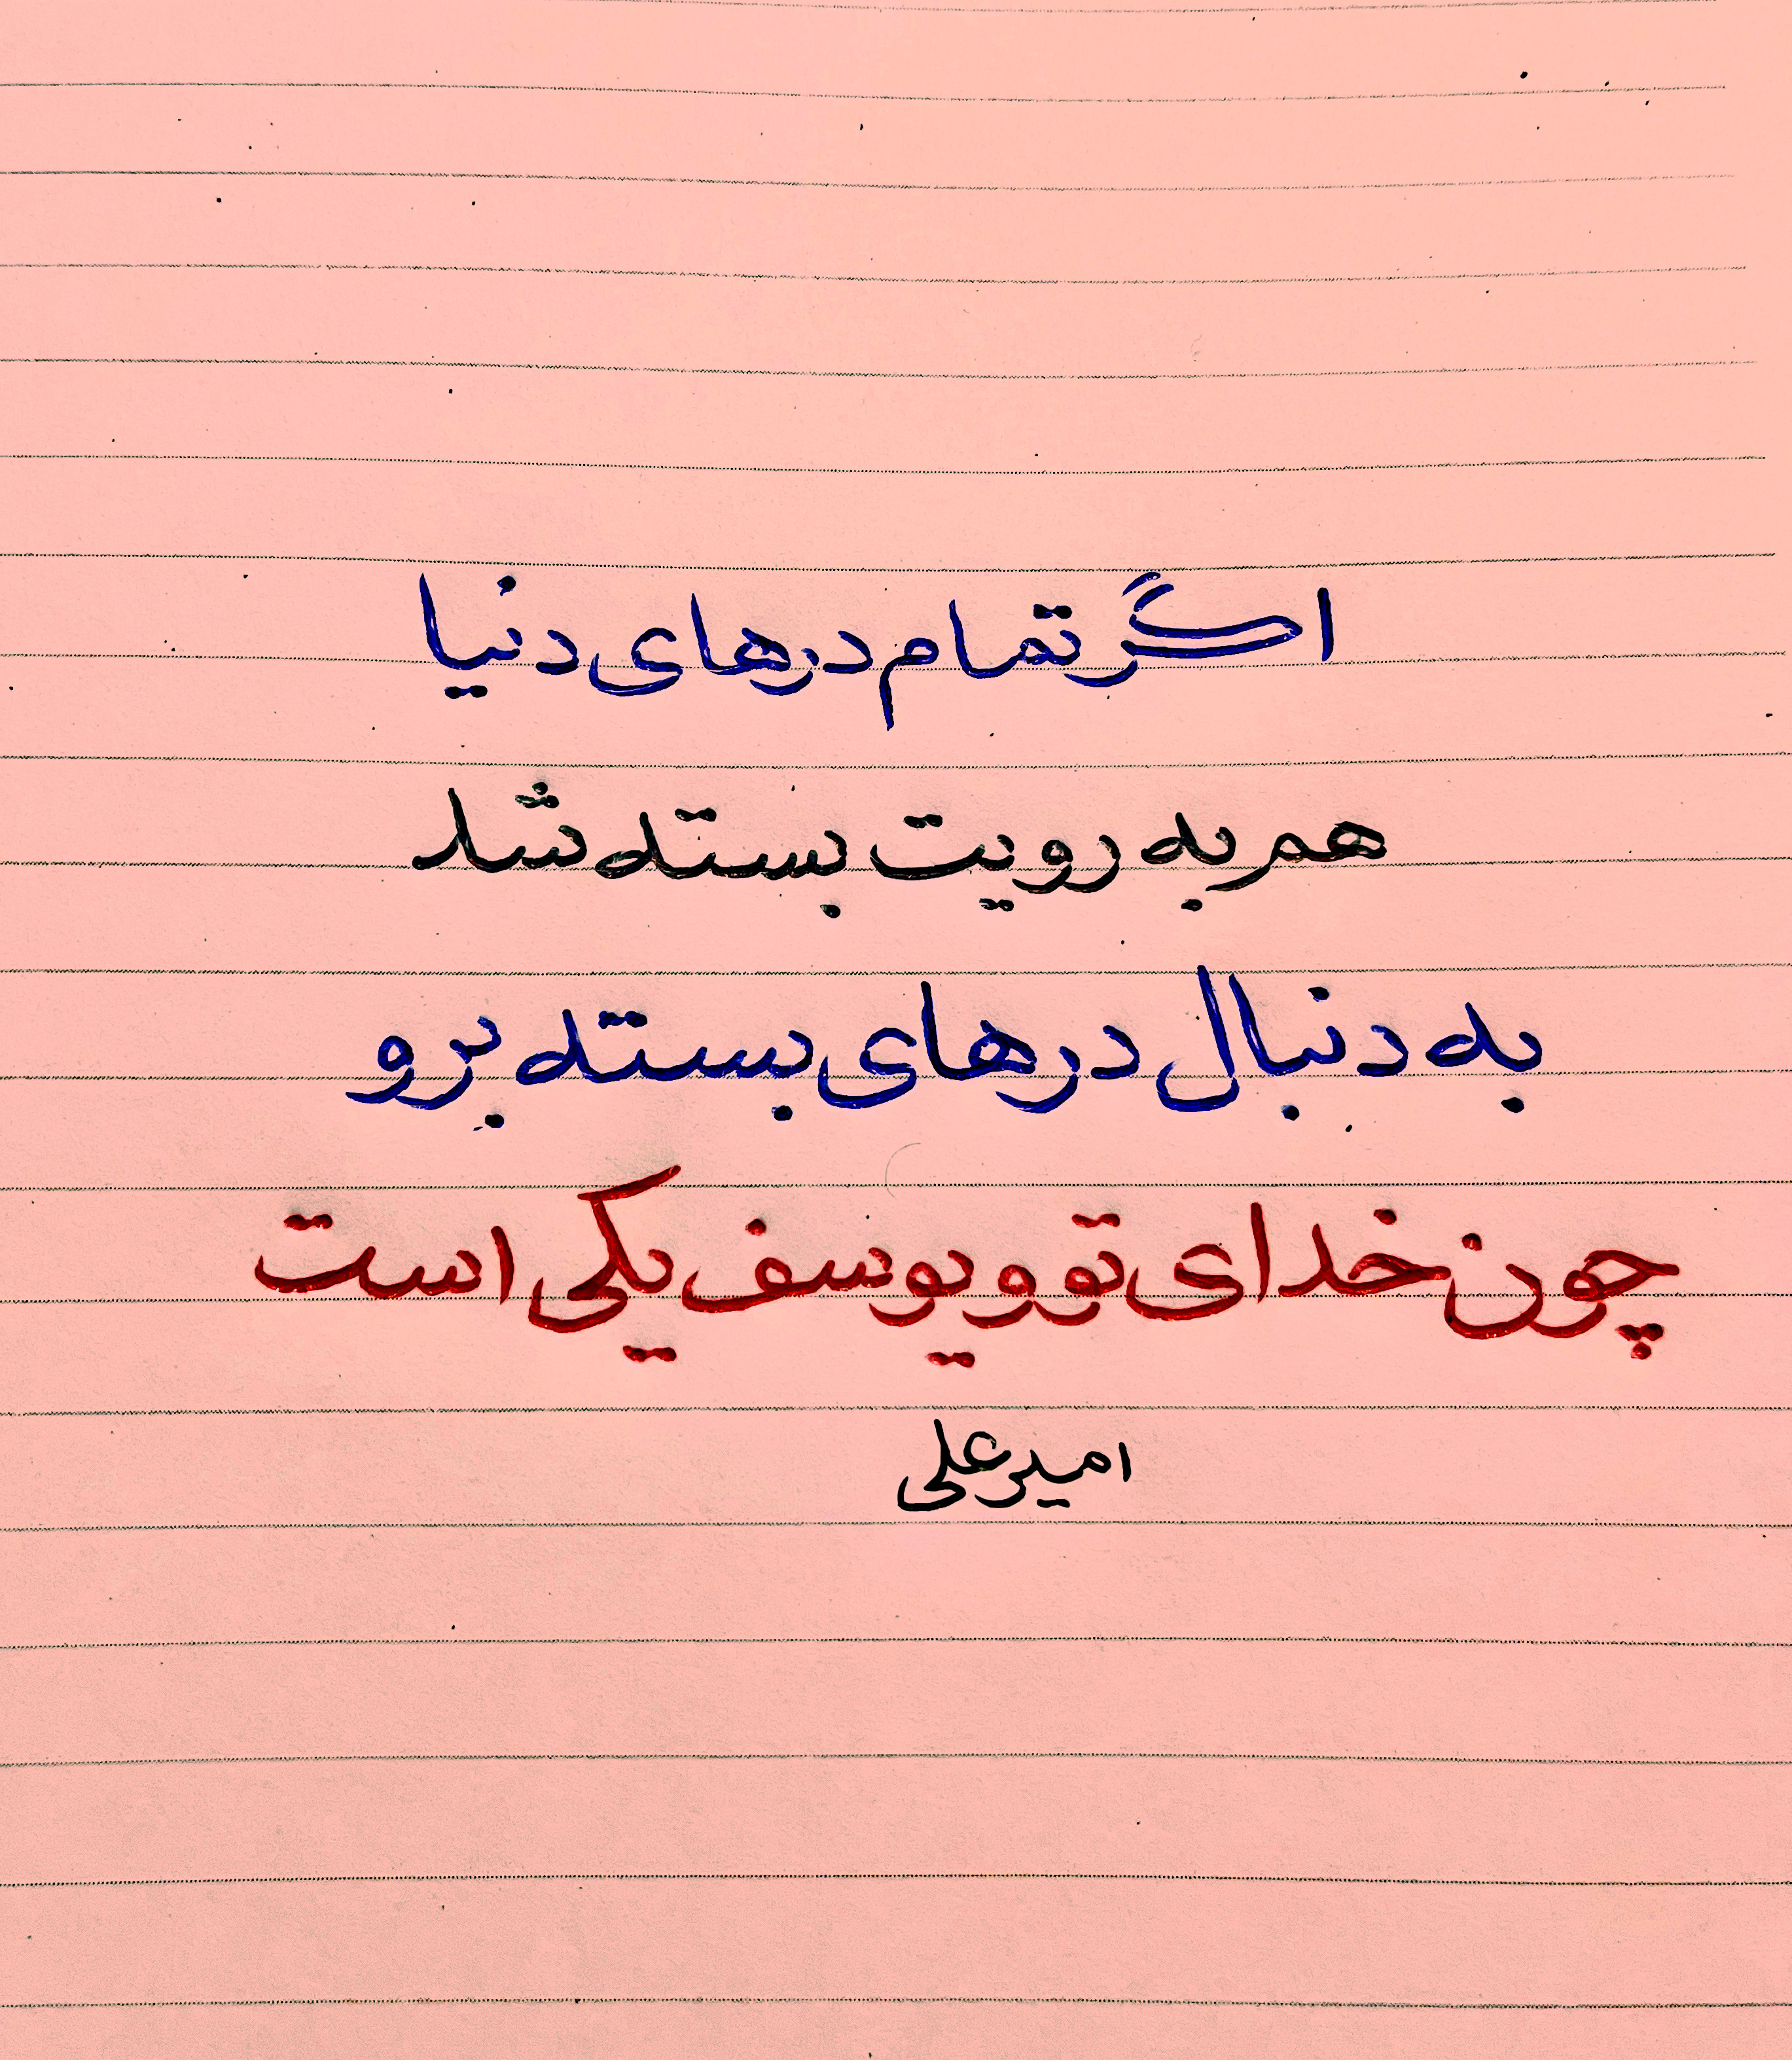 اگر تمام درهای دنیا
هم به رویت بسته شد
به دنبال درهای بسته برو
چون خدای تو و یوسف یکی است
امیرعلی